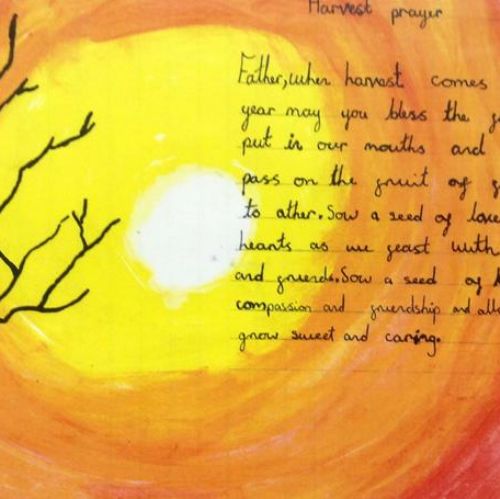 Harvest prayer
Father, when harvest comes
year may you bless the
put in our mouths and
pass on the fruit of
to other. Sow a seed of love
hearts as we feast with
and friends. Sow a seed of
compassion and friendship and all
grow sweet and caring.